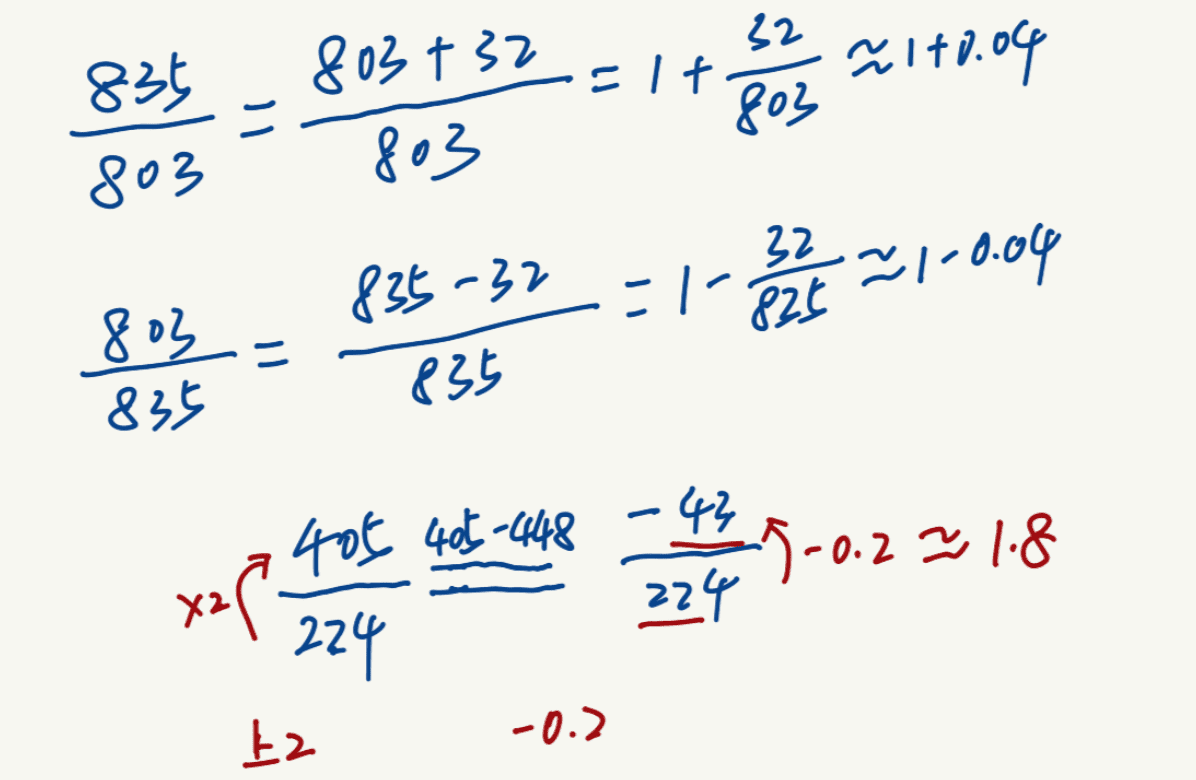 835/803 = (803+32)/803 = 1 + 32/803 ≈ 1+0.04
803/835 = (835-32)/835 = 1 - 32/825 ≈ 1-0.04
×2 405/224 405-448 -43/224 -0.2 ≈ 1.8
上2 -0.2